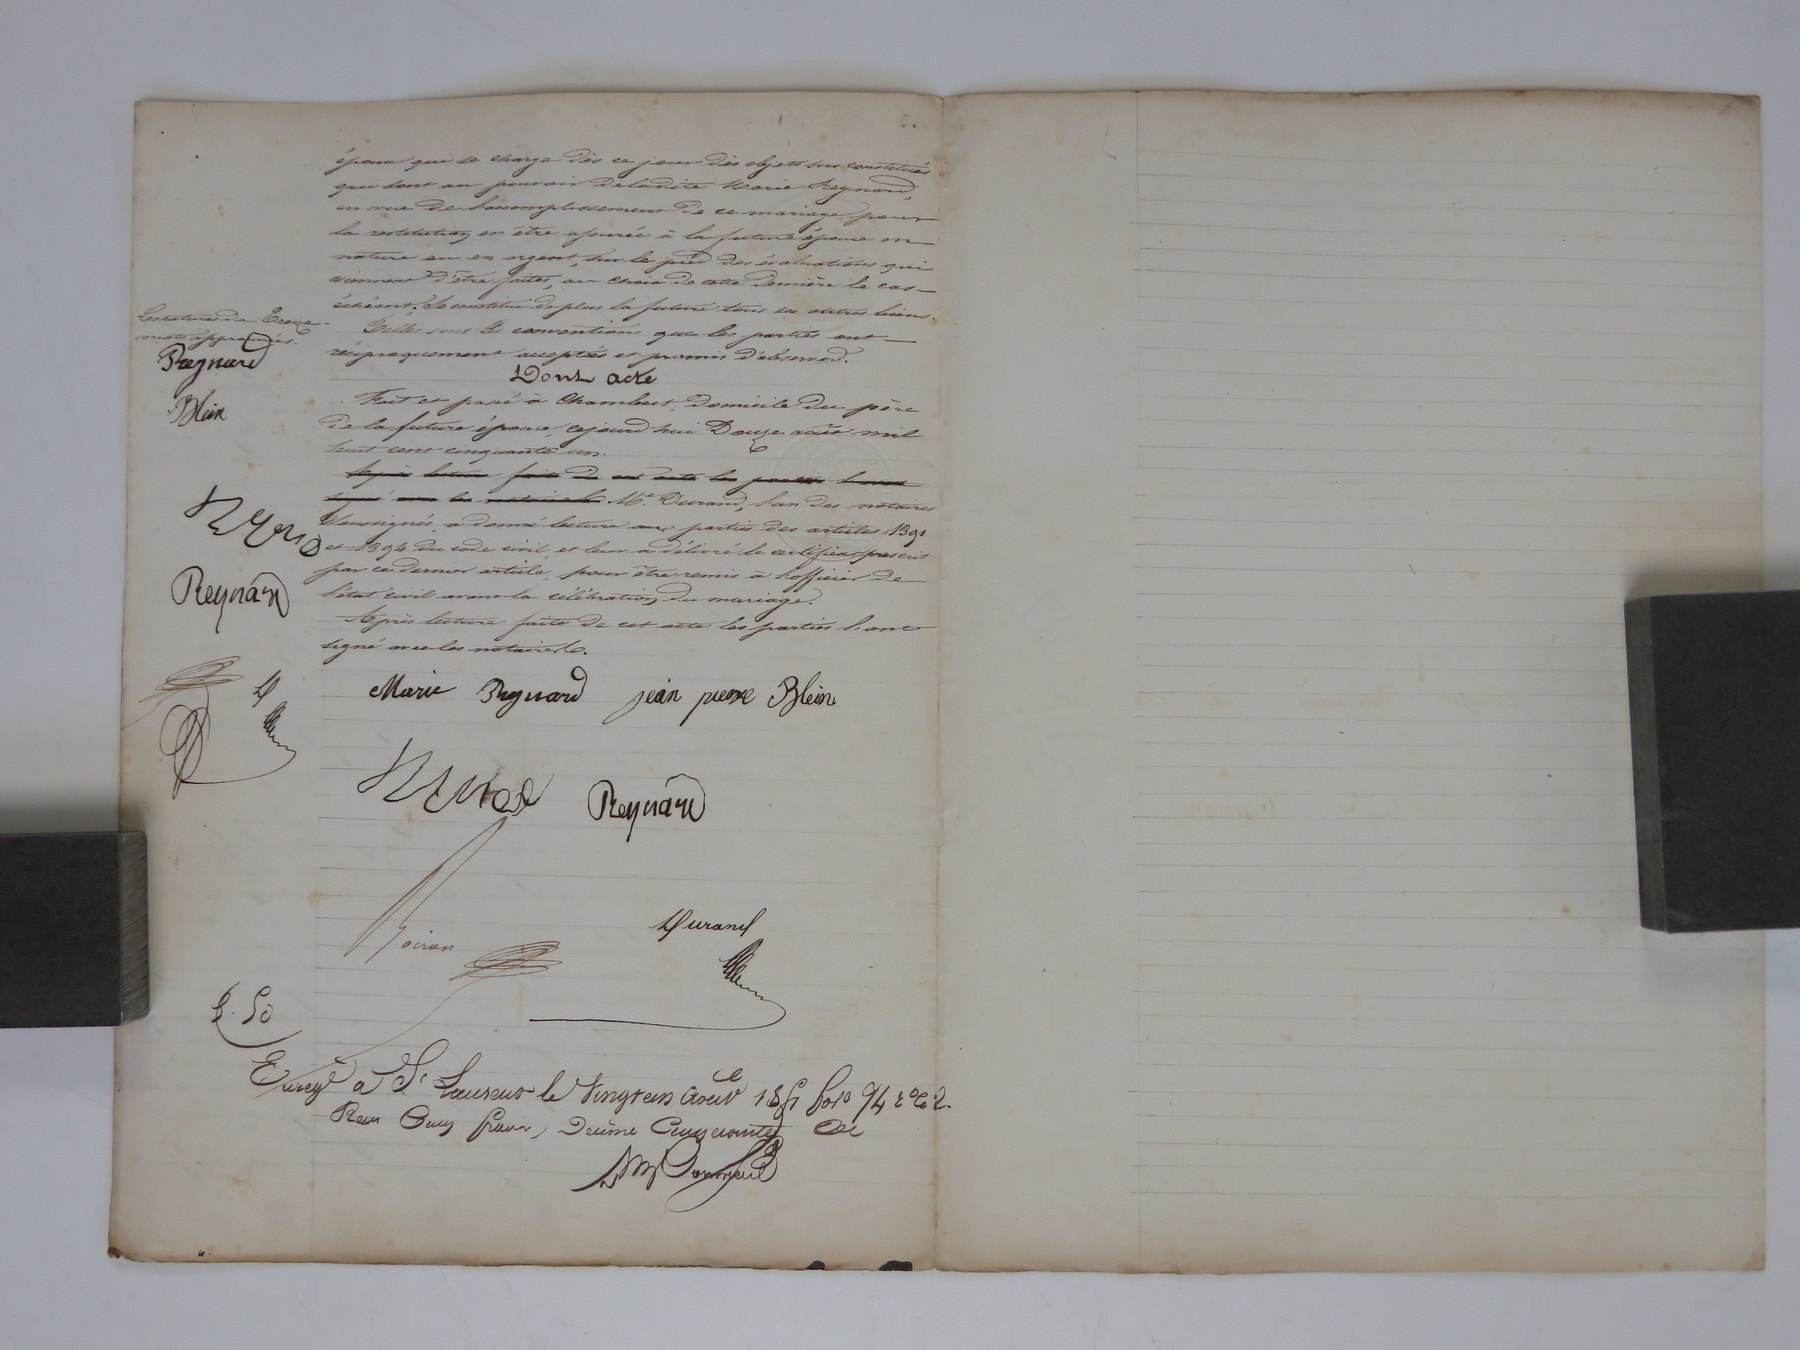 époux qui se charge dès ce jour des objets sus constitués
qui sont au pouvoir de ladite Marie Reynard,
en vue de l'accomplissement de ce mariage, pour
la restitution en être assurée à la future épouse en
nature ou en argent, sur le pied des évaluations qui
viennent d'être faites, au choix de cette dernière le cas
échéant. Se constitue de plus la future tous ses autres biens.
Telles sont les conventions que les parties ont
réciproquement acceptées et promis d'observer.
Dont acte
Fait et passé à Chambert, domicile du père
de la future épouse, cejourd'hui Douze août mil
huit cent cinquante un.
Après lecture faite de cet acte les parties l'ont
signé avec les notaires Me Durand, l'un des notaires
soussignés, a donné lecture aux parties des articles 1391
et 1394 du code civil, et leur a délivré le certificat prescrit
par ce dernier article, pour être remis à l'officier de
l'état civil avant la célébration du mariage.
Après lecture faite de cet acte les parties l'ont
signé avec les notaires.
Les ratures de Treize
mots approuvées.
Reynard
Blein
Reynard
D
Marie Reynard jean pierre Blein
Reynard
Durand
Enregé a St Laurent le Vingt un Août 1851 fo 94
Reçu Cinq francs, Decime Cinquante